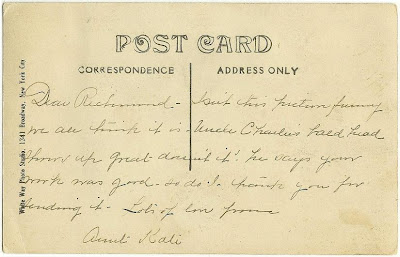 POST CARD
CORRESPONDENCE
ADDRESS ONLY
Dear Richmond - Isn't this picture funny
we all think it is - Uncle Charles bald head
shows up great doesn't it! he says your
work was good - so do I. thank you for
sending it - Lots of love from
Aunt Kate
White Way Photo Studio, 1341 Broadway, New York City